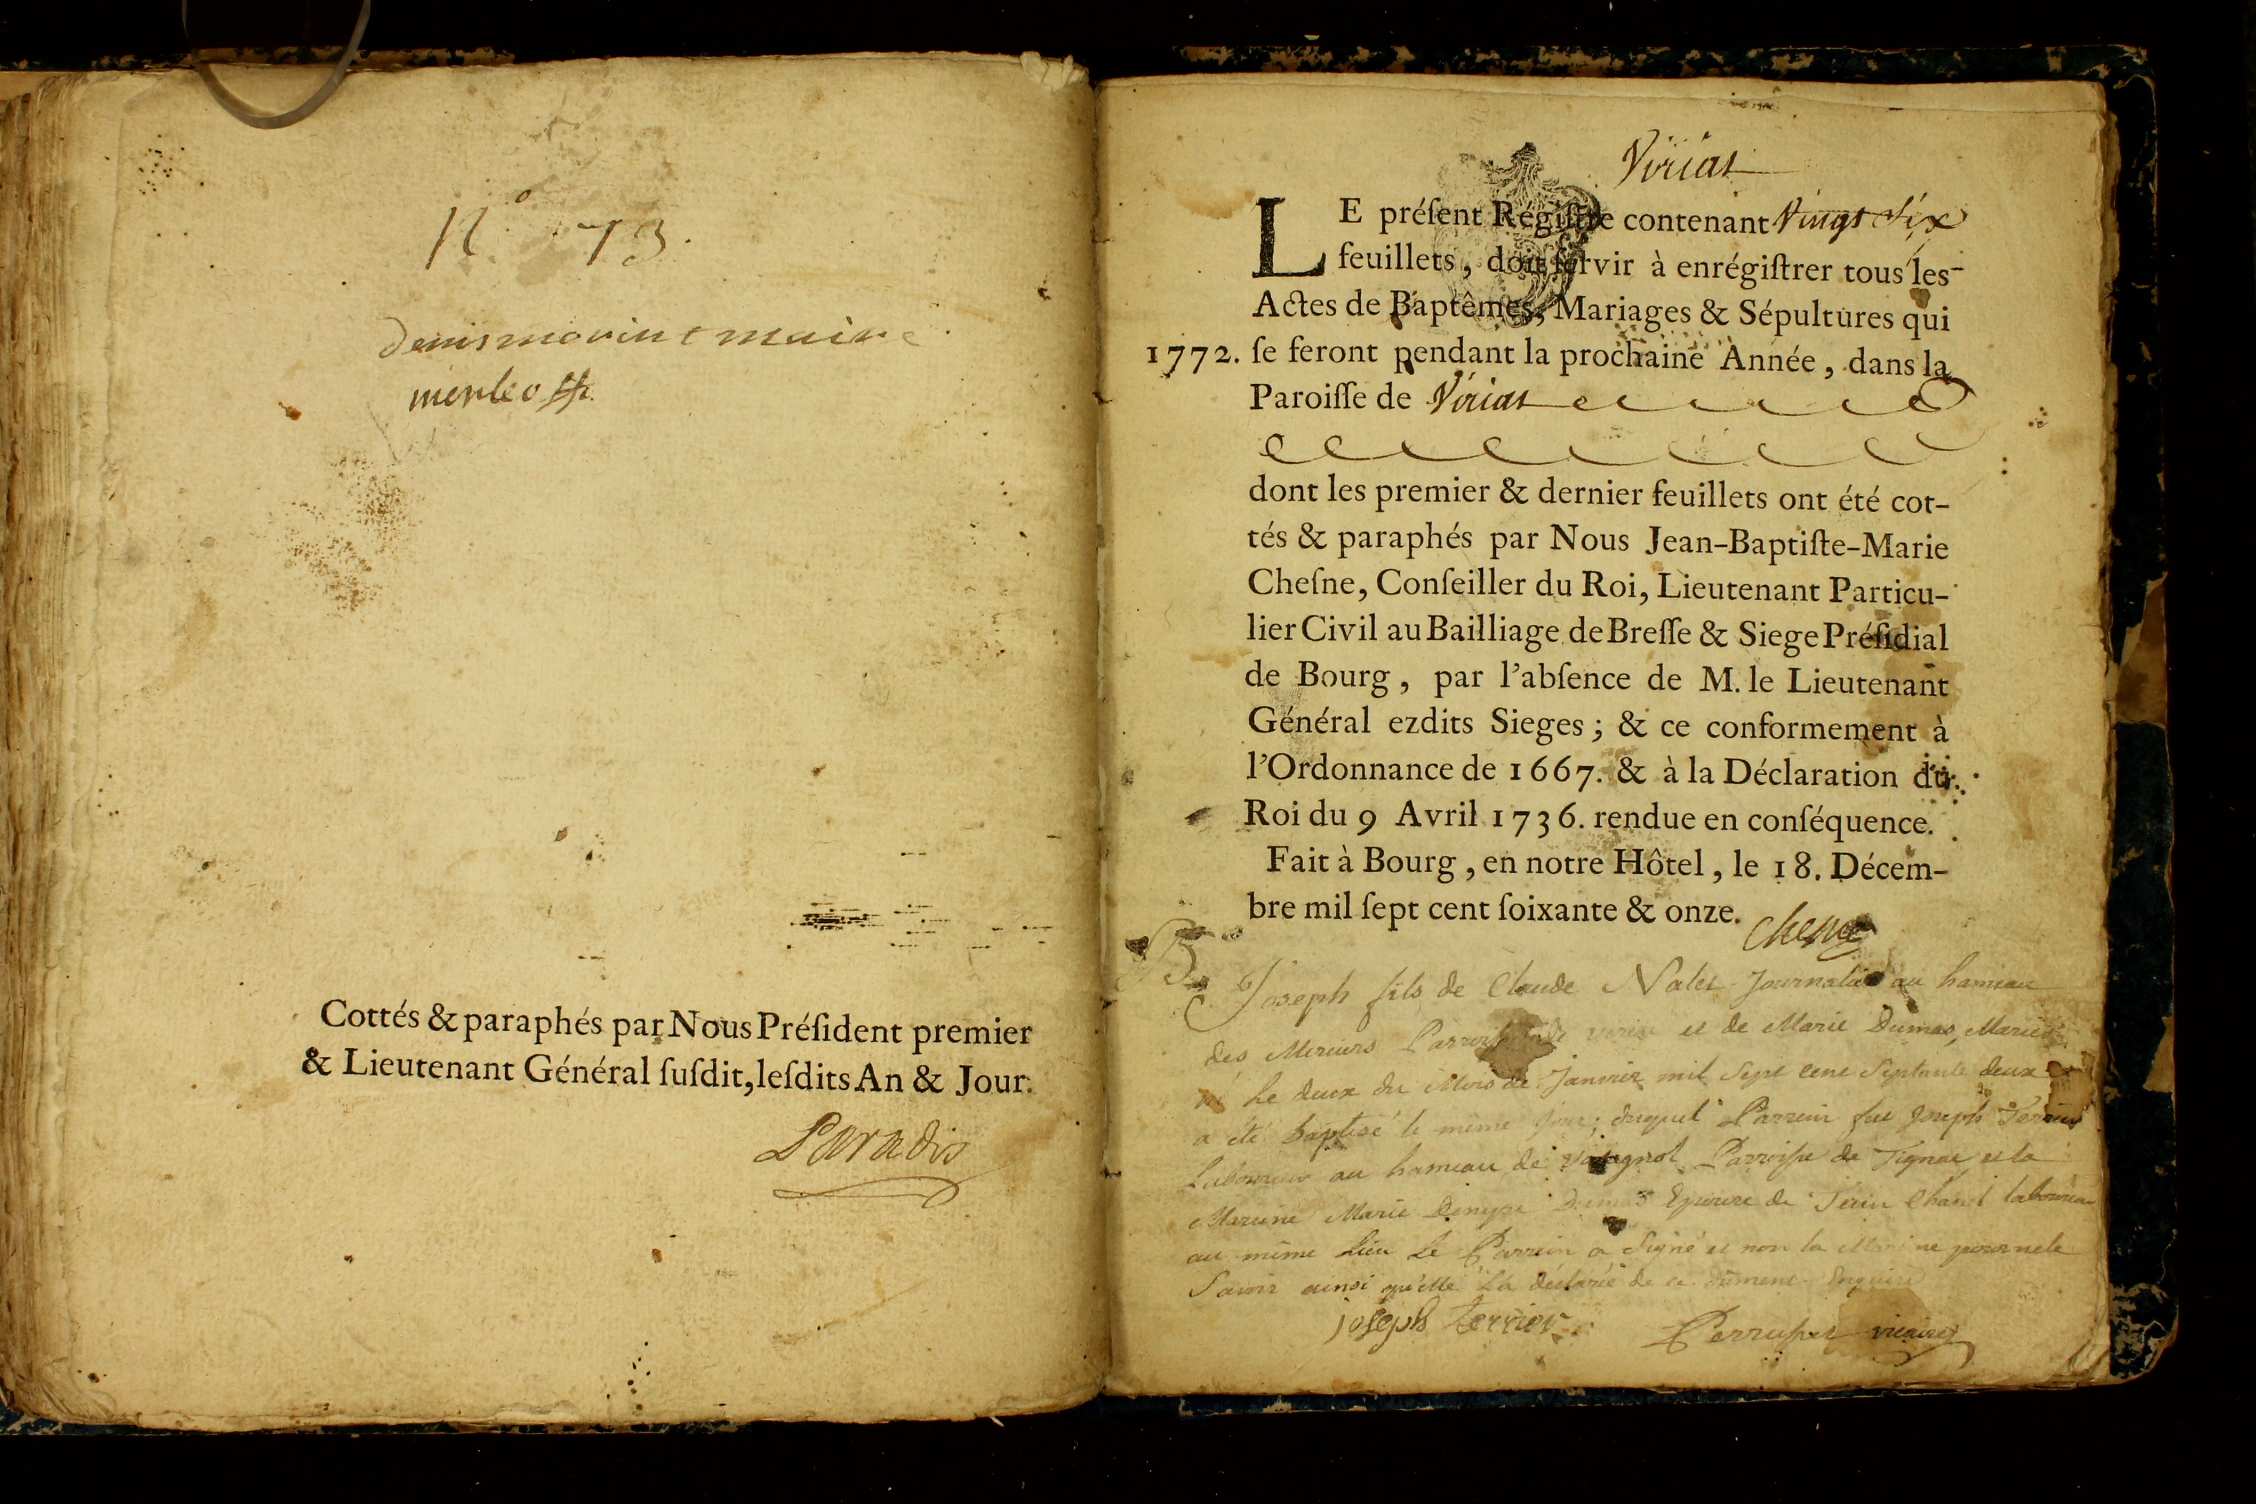 N.° 73.
denis morin t maire
Cottés & paraphés par Nous Préſident premier
& Lieutenant Général ſuſdit, leſdits An & Jour.
Paradis
Viriat
LE préſent Régiſtre contenant Vingt Six
feuillets, doit ſervir à enrégiſtrer tous les
Actes de Baptêmes, Mariages & Sépultures qui
1772. ſe feront pendant la prochaine Année, dans la
Paroiſſe de Viriat
dont les premier & dernier feuillets ont été cot-
tés & paraphés par Nous Jean-Baptiſte-Marie
Cheſne, Conſeiller du Roi, Lieutenant Particu-
lier Civil au Bailliage de Breſſe & Siege Préſidial
de Bourg, par l'abſence de M. le Lieutenant
Général ezdits Sieges; & ce conformement à
l'Ordonnance de 1667. & à la Déclaration du
Roi du 9 Avril 1736. rendue en conſéquence.
Fait à Bourg, en notre Hôtel, le 18. Décem-
bre mil ſept cent ſoixante & onze.
Chesne
B.
Joseph fils de Claude Nalet Journalier au hameau
des Merciers et de Marie Dumas, Mariés
né Le deux du Mois de Janvier mil Sept Cent Septante deux
a été baptisé le même jour; duquel Parrein fut Joseph Terrier
Laboureur au hameau de Parroisse de et la
Mareine Marie Denyse Epouse de laboureur
au même Lieu Le Parrein a Signé et non la Mareine pour ne le
Savoir ainsi qu'elle l'a déclaré de ce dument Enquise
joseph terrier
vicaire